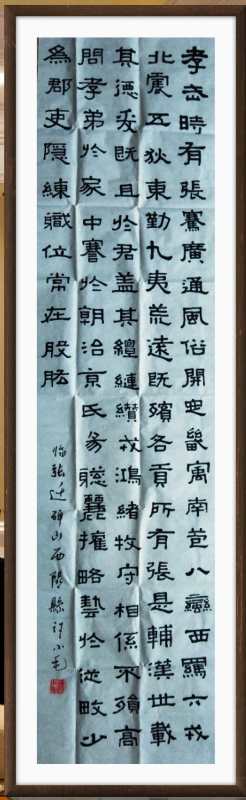 孝武時有張騫廣通風俗開定畿寓南苞八蠻西羈六戎
北震五狄東勤九夷荒遠既殯各貢所有張是輔漢世載
其德爰既且於君盖其繵縺纘戎鴻緒牧守相係不殞高
問孝弟於家中謇於朝治京氏易聡麗權略藝於從畋少
為郡吏隱練職位常在股肱
临張迁碑山西隰縣許小毛